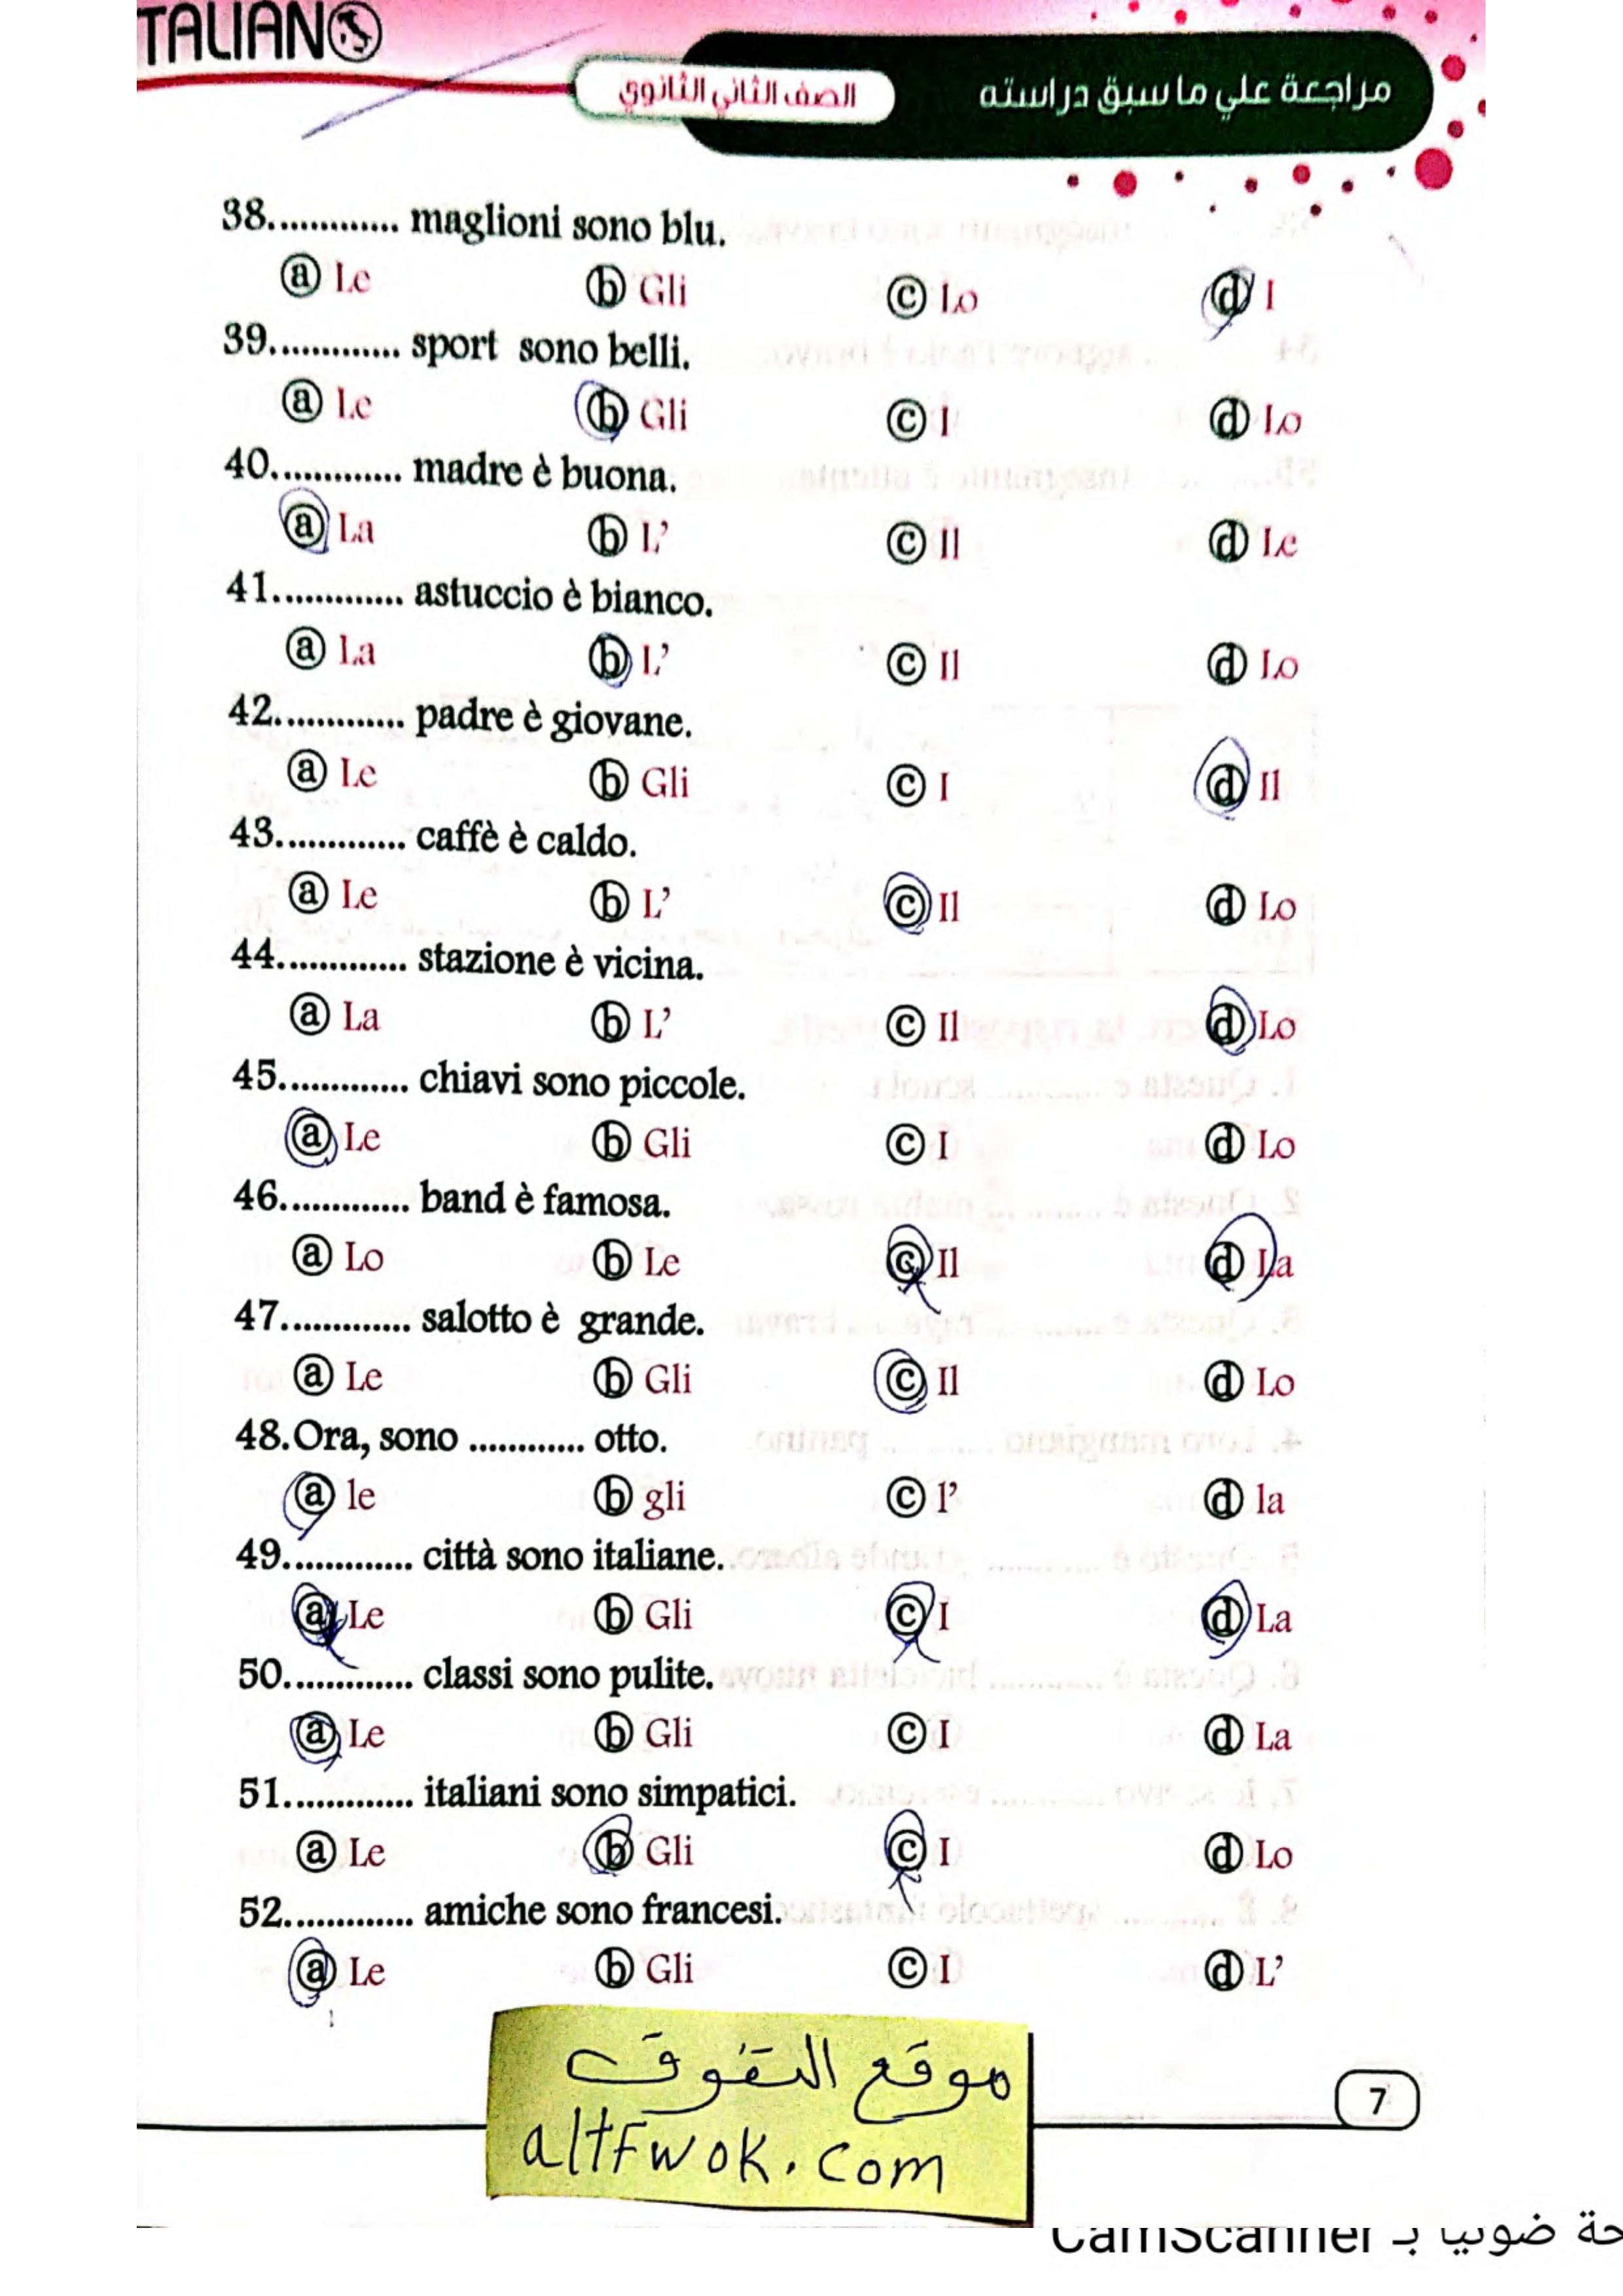 TALIANO
مراجعة علي ما سبق دراسته
الصف الثاني الثانوي
38............. maglioni sono blu.
ⓐ Le ⓑ Gli ⓒ Lo ⓓ I
39............. sport sono belli.
ⓐ Le ⓑ Gli ⓒ I ⓓ Lo
40............. madre è buona.
ⓐ La ⓑ L’ ⓒ Il ⓓ Le
41............. astuccio è bianco.
ⓐ La ⓑ L’ ⓒ Il ⓓ Lo
42............. padre è giovane.
ⓐ Le ⓑ Gli ⓒ I ⓓ Il
43............. caffè è caldo.
ⓐ Le ⓑ L’ ⓒ Il ⓓ Lo
44............. stazione è vicina.
ⓐ La ⓑ L’ ⓒ Il ⓓ Lo
45............. chiavi sono piccole.
ⓐ Le ⓑ Gli ⓒ I ⓓ Lo
46............. band è famosa.
ⓐ Lo ⓑ Le ⓒ Il ⓓ La
47............. salotto è grande.
ⓐ Le ⓑ Gli ⓒ Il ⓓ Lo
48.Ora, sono ............ otto.
ⓐ le ⓑ gli ⓒ l’ ⓓ la
49............. città sono italiane.
ⓐ Le ⓑ Gli ⓒ I ⓓ La
50............. classi sono pulite.
ⓐ Le ⓑ Gli ⓒ I ⓓ La
51............. italiani sono simpatici.
ⓐ Le ⓑ Gli ⓒ I ⓓ Lo
52............. amiche sono francesi.
ⓐ Le ⓑ Gli ⓒ I ⓓ L’
موقع التفوق
altFwok.com
7
حة ضوئيا بـ CamScanner